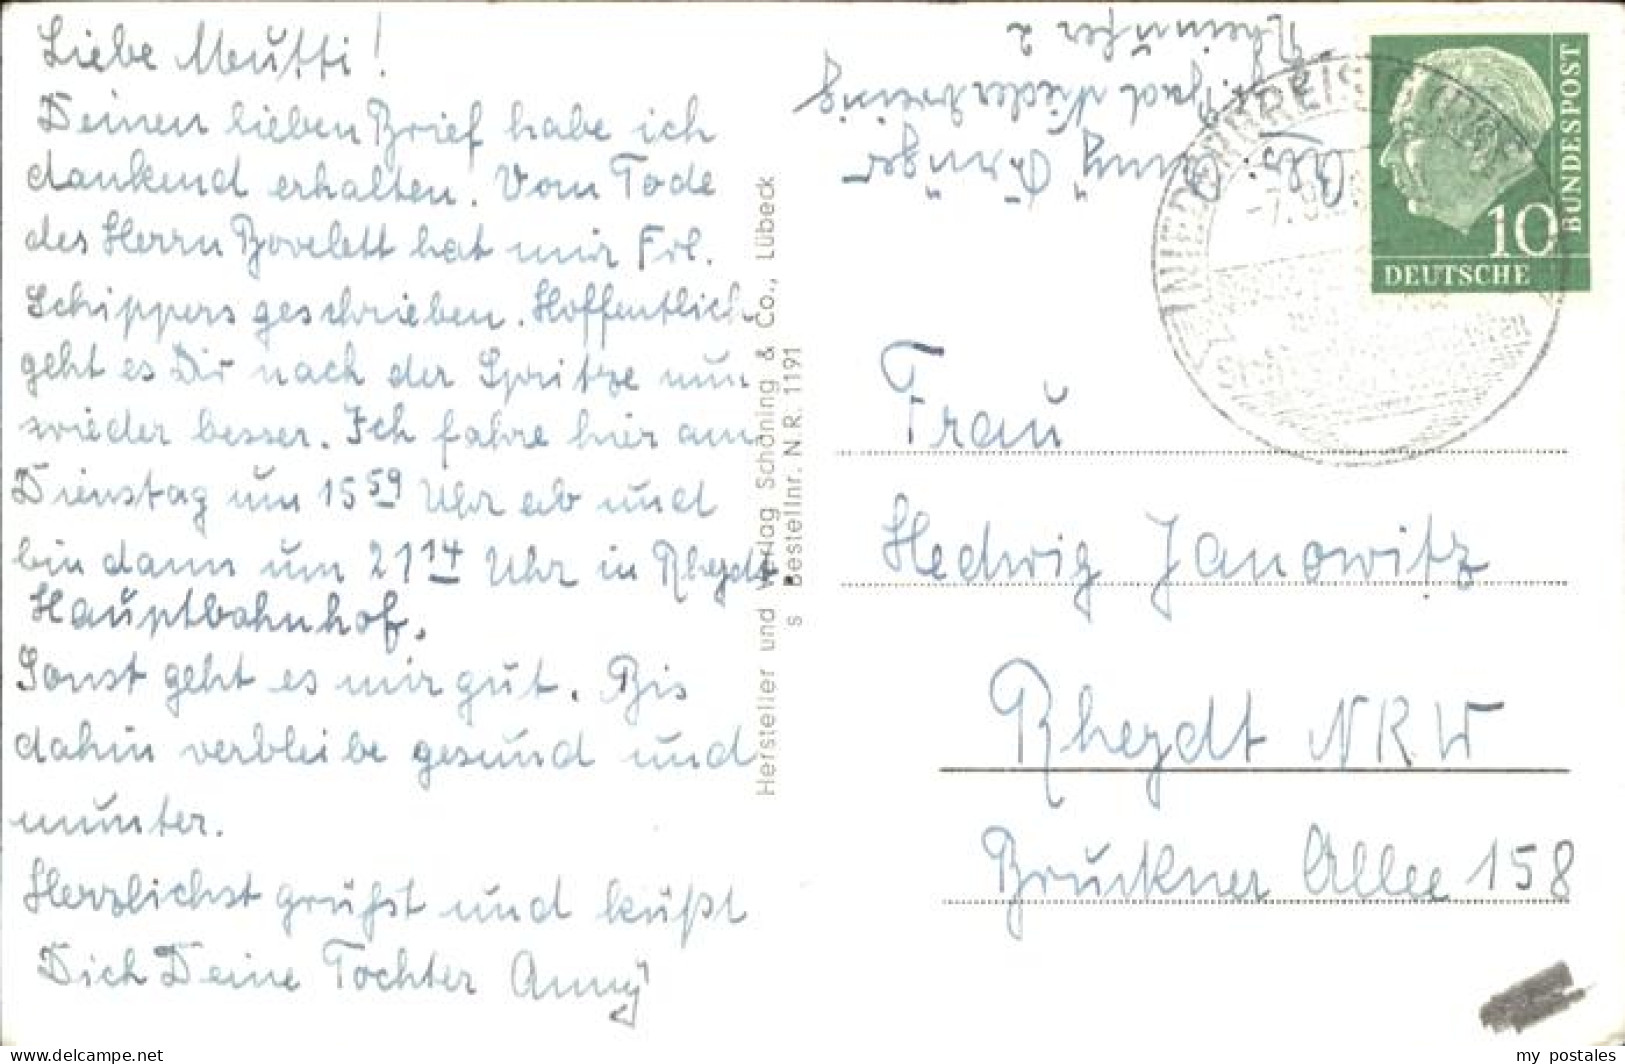 Liebe Mutti!
Deinen lieben Brief habe ich
dankend erhalten. Vom Tode
des Herrn Bovelett hat mir Frl.
Schippers geschrieben. Hoffentlich
geht es Dir nach der Spritze nun
wieder besser. Ich fahre hier am
Dienstag um 15 59 Uhr ab und
bin dann um 21 14 Uhr in Rheydt
Hauptbahnhof.
Sonst geht es mir gut. Bis
dahin verbleibe gesund und
munter.
Herzlichst grüßt und küßt
Dich Deine Tochter Anny
Hersteller und Verlag Schöning & Co., Lübeck
s Bestellnr. N.R. 1191
Abs. Anny
Bad Niederbreisig
Rheinufer 2
DEUTSCHE
BUNDESPOST
10
-7.9.
Frau
Hedwig Janowitz
Rheydt NRW
Bruckner Allee 158
www.delcampe.net
my_postales